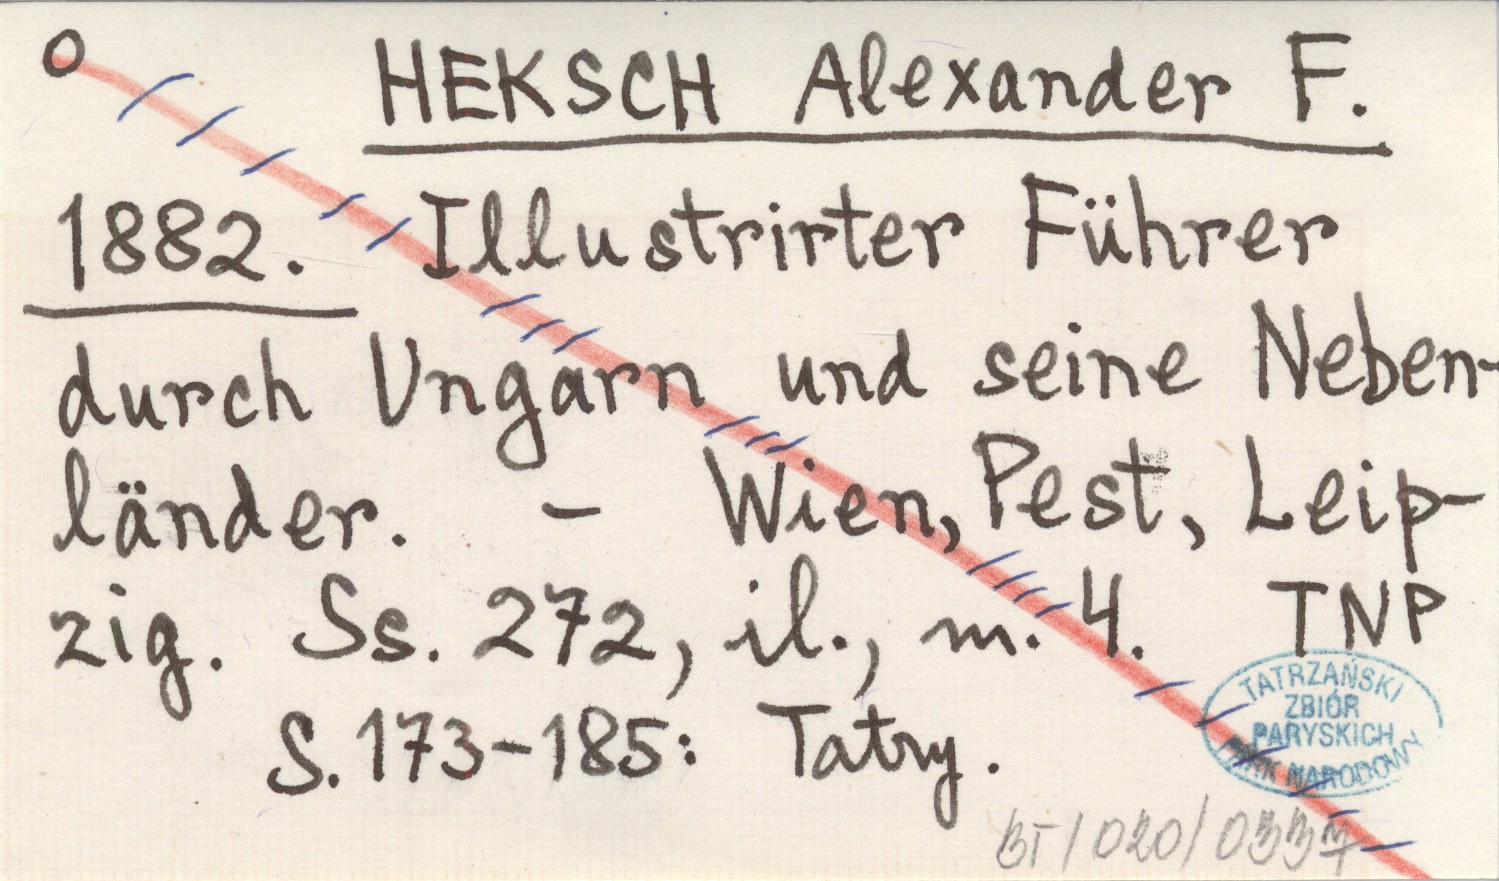 O HEKSCH Alexander F.
1882. Illustrirter Führer
durch Ungarn und seine Neben-
länder. - Wien, Pest, Leip-
zig. Ss. 272, il., m. 4. TNP
S. 173-185: Tatry.
TATRZAŃSKI
ZBIÓR
PARYSKICH
PARK NARODOWY
BT/020/0337